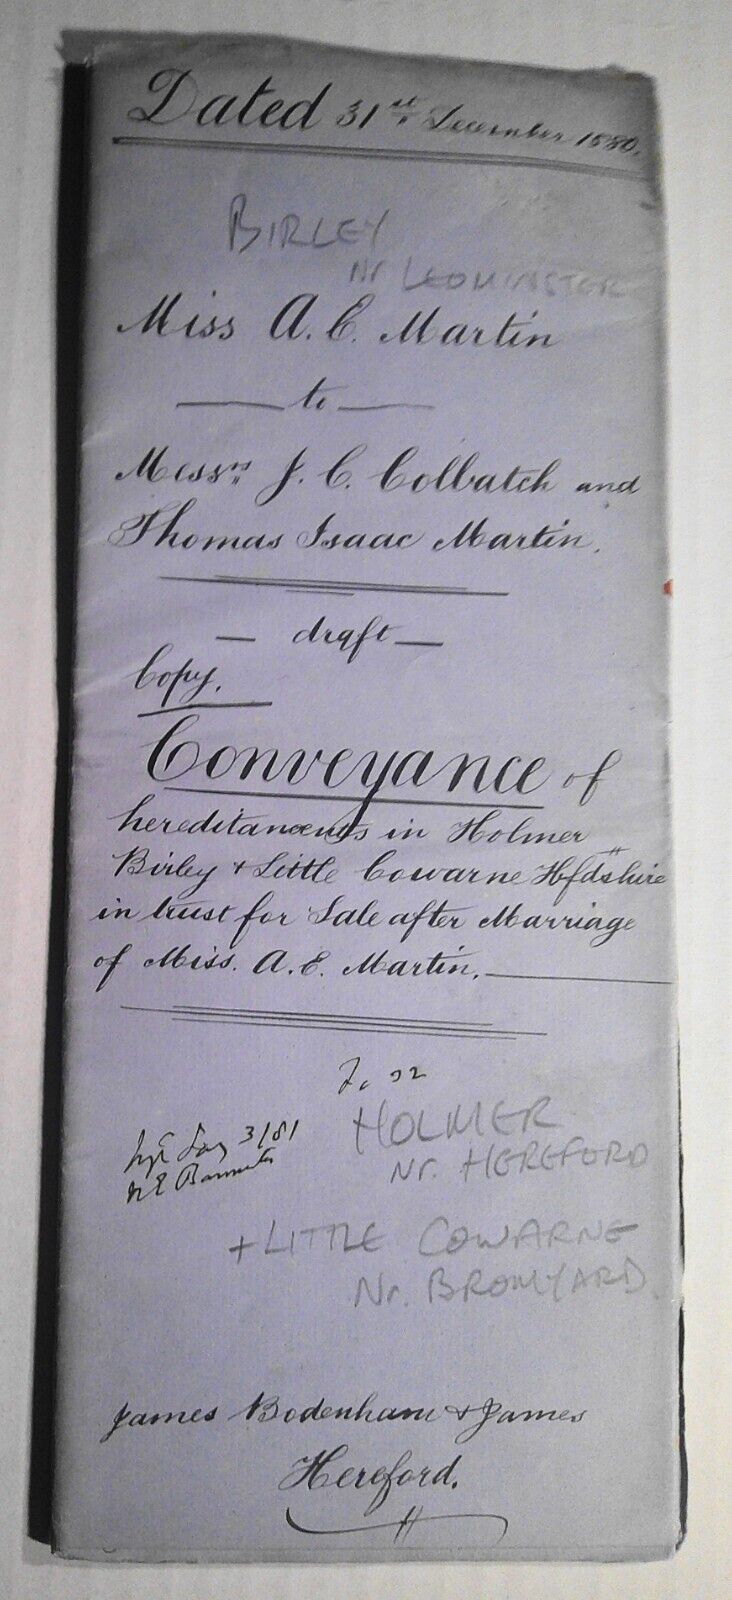 Dated 31st December 1880.
BIRLEY
Nr LEOMINSTER
Miss A. E. Martin
to
Messrs J. C. Colbatch and
Thomas Isaac Martin.
draft
Copy.
Conveyance of
hereditaments in Holmer
Birley & Little Cowarne Hfdshire
in trust for Sale after Marriage
of Miss. A. E. Martin.
HOLMER
Nr. HEREFORD
3/81
+ LITTLE COWARNE
Nr. BROMYARD.
James Bodenham & James
Hereford.